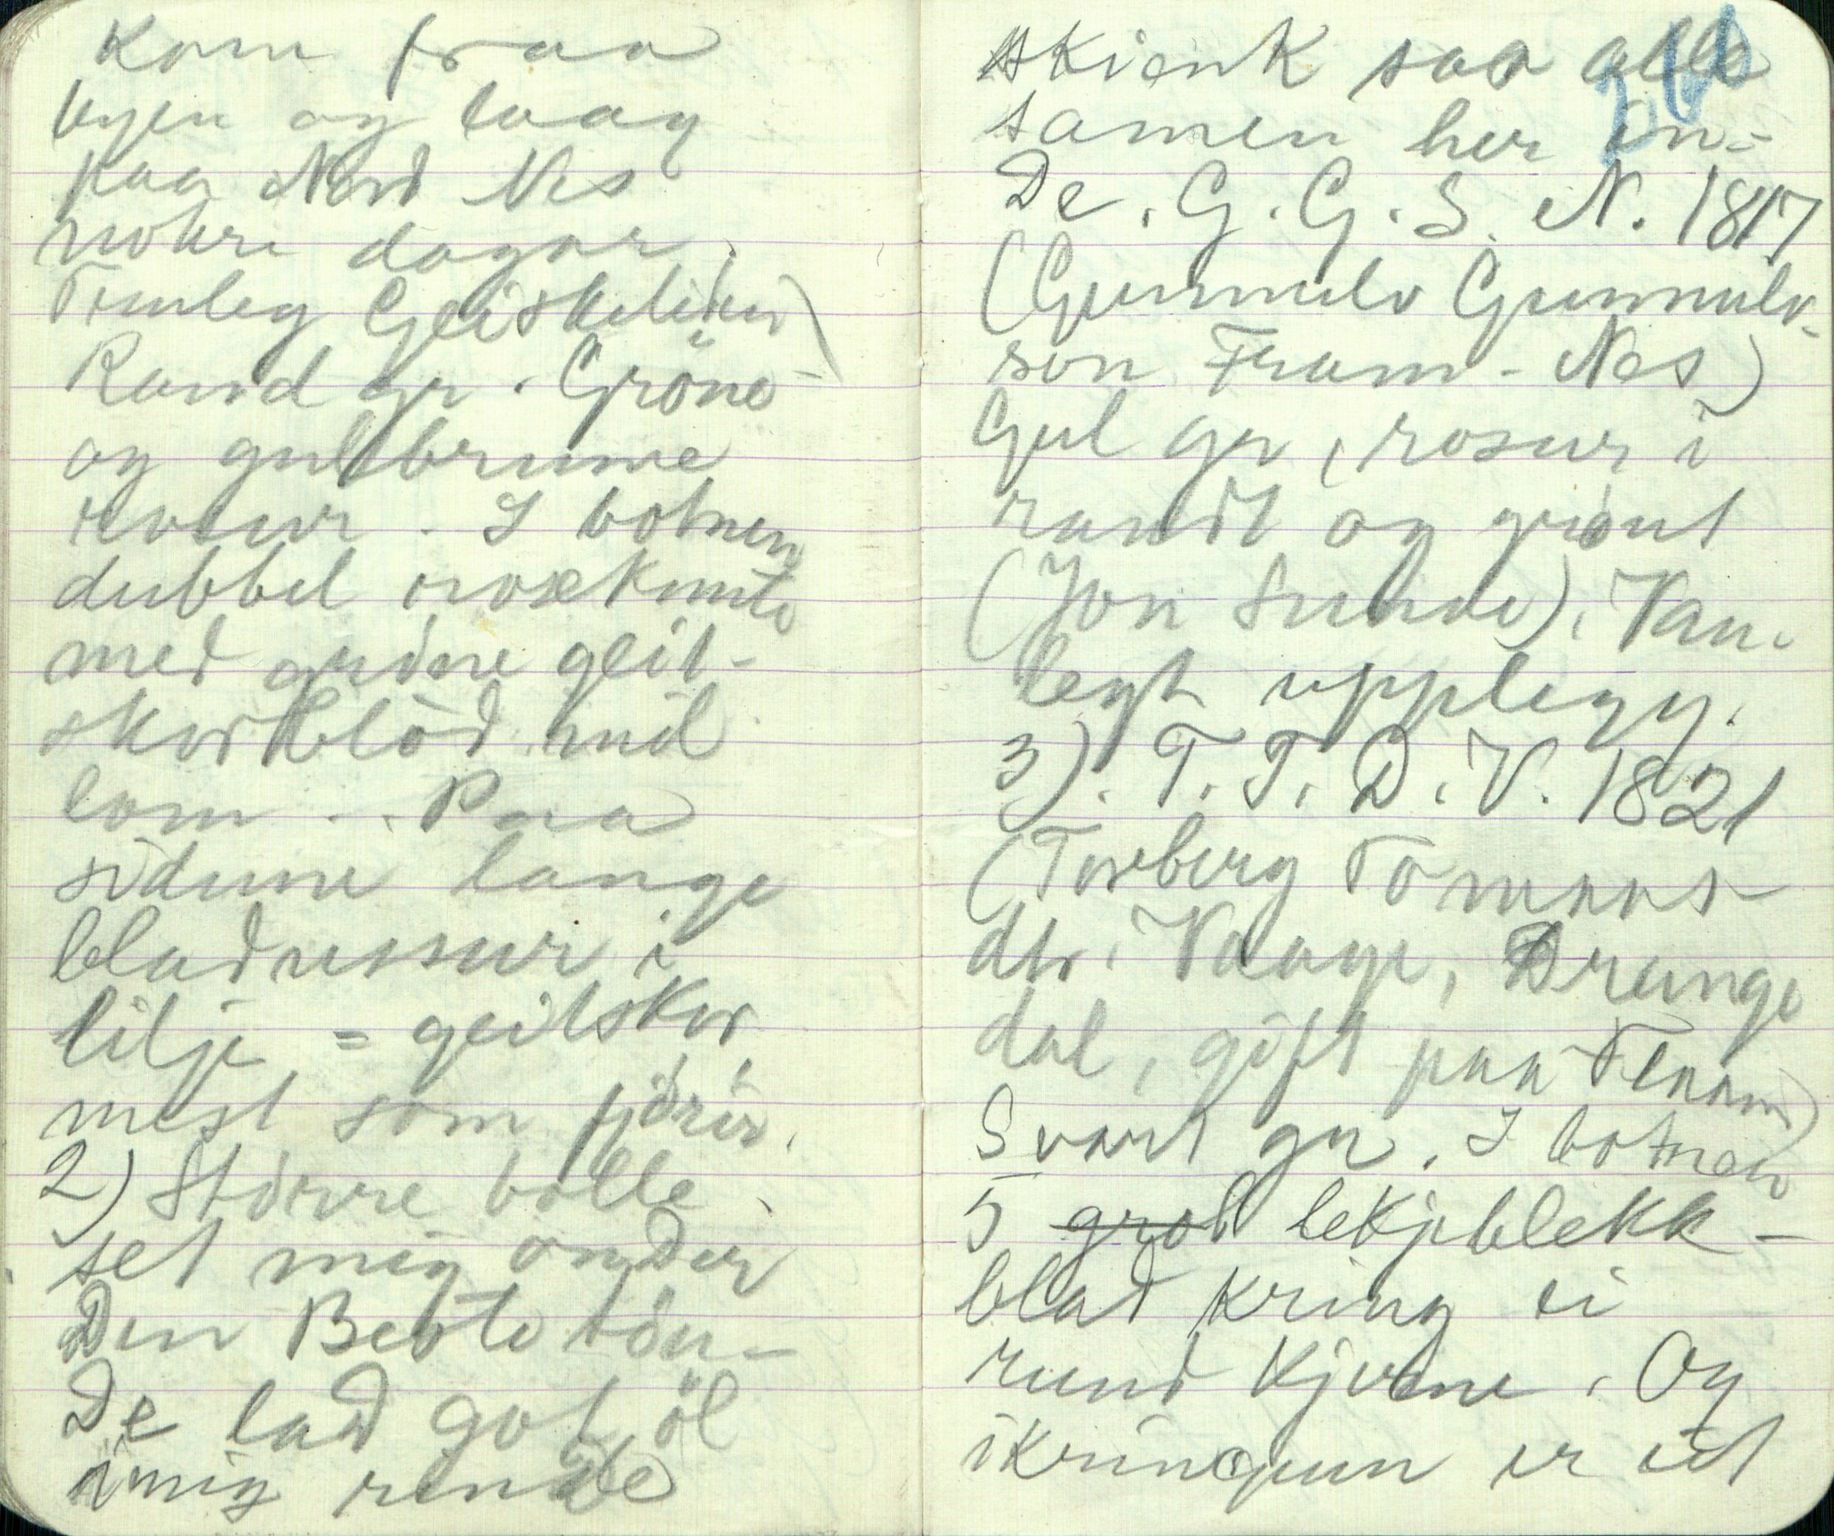 kom fraa
byen og laag
paa Nord Nes
nokre dagar.
Truleg Geiskelid)
Raud gr. Gröne
og gulbrune
rosur. I botnen
dubbel rosekunte
med gudne geit-
skor blöd mil
lom. Paa
sidune lange
bladrossur i
lilje = geitskor
mest som fjörir.
2) Större bolle
set mig onder
Den Beste tön-
De lad got öl
i mig rinde
skienk saa alle
samen her in-
De. G. G. S. N. 1817
(Gunnulv Gunnulv-
son Fram-Nes)
Gul gr, rosur i
raudt og grönt
(Jon Sunde). Van-
legt upplegg.
3). T. T. D. V. 1821
(Torberg Tomas
dtr. Vaage, Drange
dal, gift paa Fram)
Svart gr. I botnen
5 grot lekjeblekk-
blad kring ei
rund kjerne. Og
ikringum er eit
260